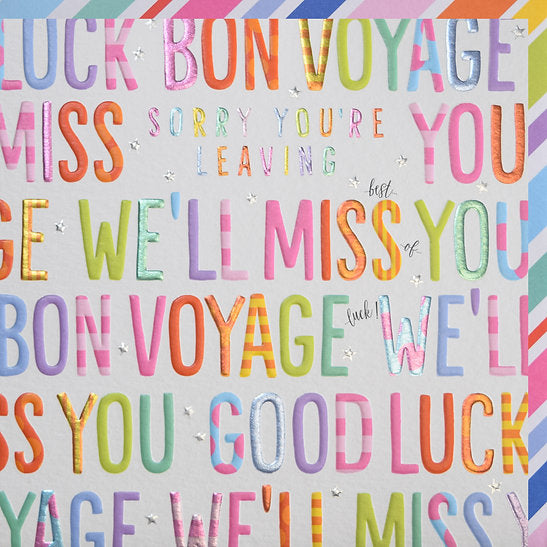 LUCK BON VOYAGE
MISS SORRY YOU'RE LEAVING YOU
GE WE'LL MISS YOU
best of luck!
BON VOYAGE WE'LL
SS YOU GOOD LUCK
VOYAGE WE'LL MISS Y